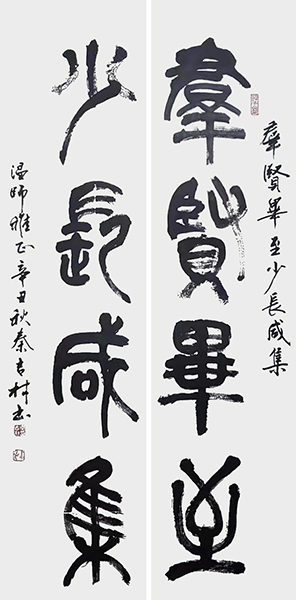 羣賢畢至
羣賢畢至少長咸集
少長咸集
温師雅正辛丑秋秦吉村書